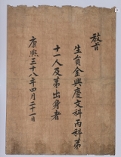 敎旨
生員金興慶文科丙科第
十一人及第出身者
康熙三十八年四月二十一日